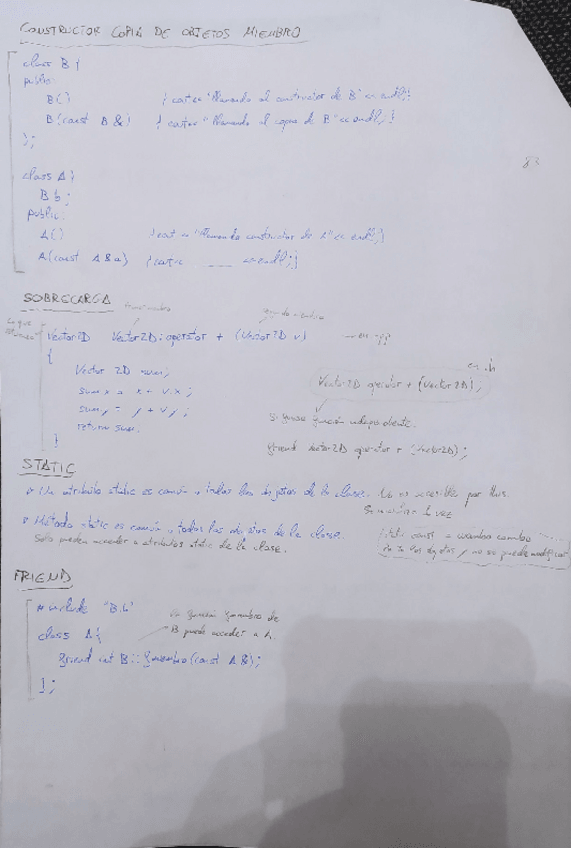 CONSTRUCTOR COPIA DE OBJETOS MIEMBRO
class B {
public:
B() { cout << "Llamando al constructor de B" << endl; }
B(const B &) { cout << "Llamando al copia de B" << endl; }
};
83
class A {
B b;
public:
A() { cout << "Llamando constructor de A" << endl; }
A(const A & a) { cout << ____ << endl; }
SOBRECARGA
Lo que
Vector2D Vector2D::operator + (Vector2D v)
en .h
{
Vector2D operator + (Vector2D);
Vector 2D sum;
sum.x = x + v.x;
sum.y = y + v.y;
Si fuese función independiente.
return sum.
friend Vector2D operator + (Vector2D);
}
STATIC
Un atributo static es común a todos los objetos de la clase. No es accesible por this.
1 vez
Método static es común a todos los objetos de la clase.
static const =
Solo pueden acceder a atributos static de la clase.
los objetos y no se puede modificar
FRIEND
# include "B.h"
función fmiembro de
B puede acceder a A.
class A {
friend int B::fmiembro(const A &);
};